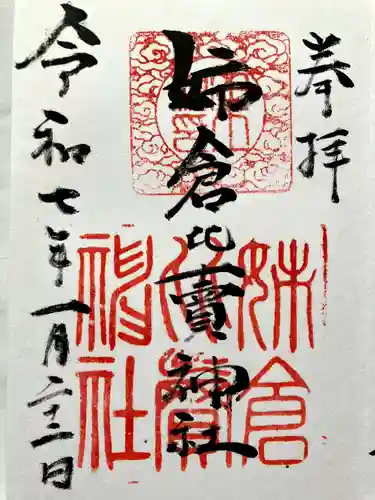 奉拝
姉倉比賣神社
令和七年一月二十二日
姉倉比賣神社